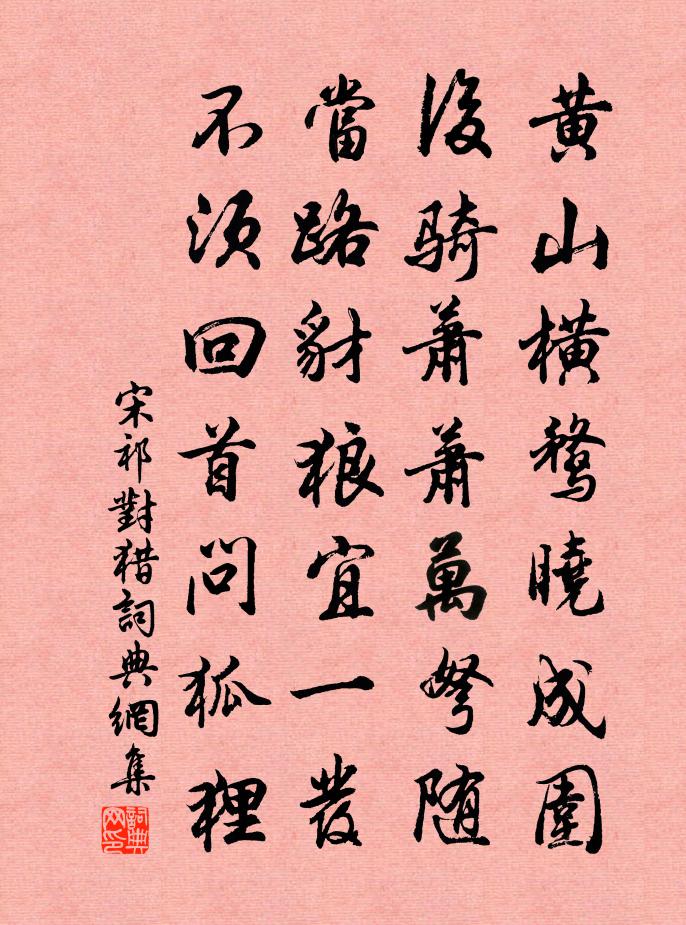 黄山橫鶩曉成圍
後骑蕭蕭萬弩随
當路豺狼宜一發
不須回首問狐狸
宋祁對猎詞典網集
詞典网印